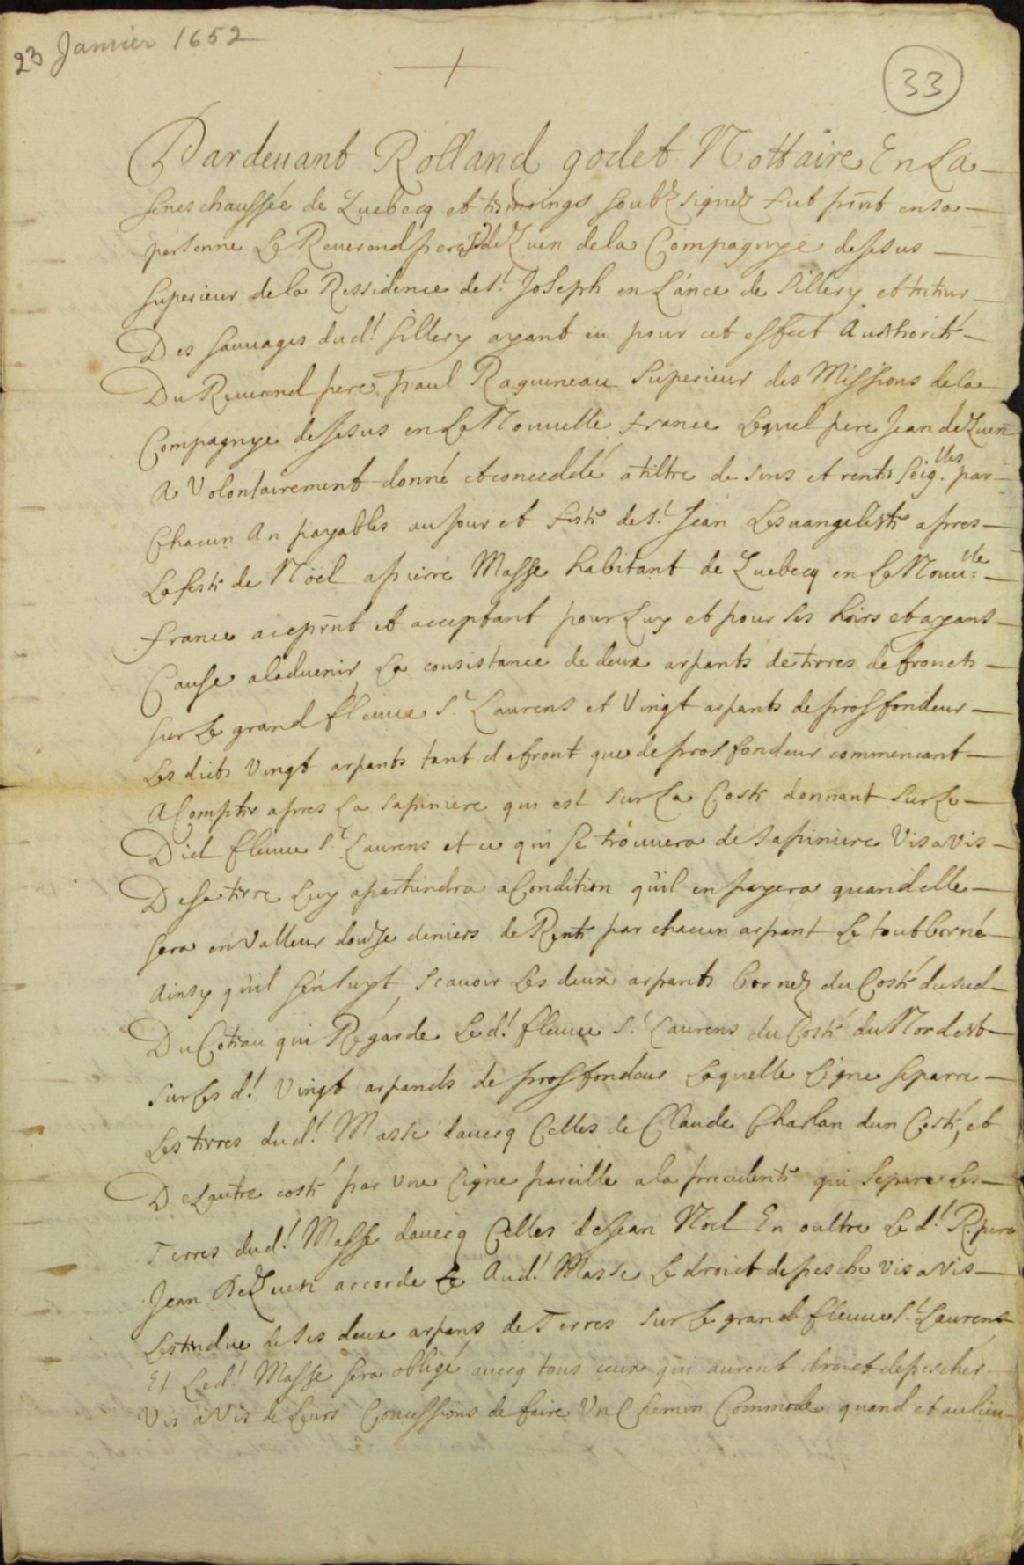 23 Janvier 1652
33
Pardeuant Rolland godet Nottaire En La
seneschaussée de Quebecq et tesmoings soubz signez fut pñt en sa
personne Le Reuerand pere J. deQuen de la Compagnye de Jesus
superieur de la Ressidence de St. Joseph en L'ance de Sillery et tuteur
Des sauuages dud.t sillery ayant eu pour cet effect Authorité
Du Reuerend pere paul Ragueneau Superieur des Missions de la
Compagnye de Jesus en La Nouuelle france Lequel pere Jean deQuen
A Volontairement donné et conceddé a tiltre de sens et rentes seig.lles par
Chacun An payables au Jour et feste de St. Jean Lesuangeliste apres
La feste de Nöel a pierre Masse habitant de Quebecq en La Nouu.lle
france a ce pñt et acceptant pour Luy et pour ses hoirs et ayans
Cause a laduenir La consistance de deux arpants de terres de fronct
sur Le grand fleuue St. Laurens et Vingt arpants de proffondeur
Les dicts Vingt arpants tant de front que de proffondeur commencant
A Compter apres La sapiniere qui est sur La Coste donnant sur Le
Dict fleuue St. Laurens et ce qui se trouuera de sapiniere Vis a Vis
De sa terre Luy apartiendra a Condition qu'il en payera quand elle
sera en Valleur douze deniers de Rente par chacun arpant Le tout borné
Ainsy qu'il s'ensuyt, scauoir Les deux arpants bornez du Costé du sud
Du Coteau qui Régarde Led.t fleuue St. Laurens du Costé du Nordest
sur Les d.t Vingt arpents de proffondeur Laquelle Ligne separe
Les terres dud.t Masse dauecq Celles de Claude Charlan dun Costé, et
De Lautre costé par Vne Ligne pareille a la precedente qui Separe Les
Terres dud.t Masse dauecq Celles de Jean Nöel En oultre Le d.t R. pere
Jean DeQuen accorde Aud.t Masse Le droict de pesche Vis a Vis
Lestendue de ses deux arpans de Terres sur Le grand fleuue St. Laurens
Et Led.t Masse sera obligé auecq tous ceux qui auront droict de pescher
Vis a Vis de Leurs Concessions de faire Vn Chemin Commode quand et au lieu